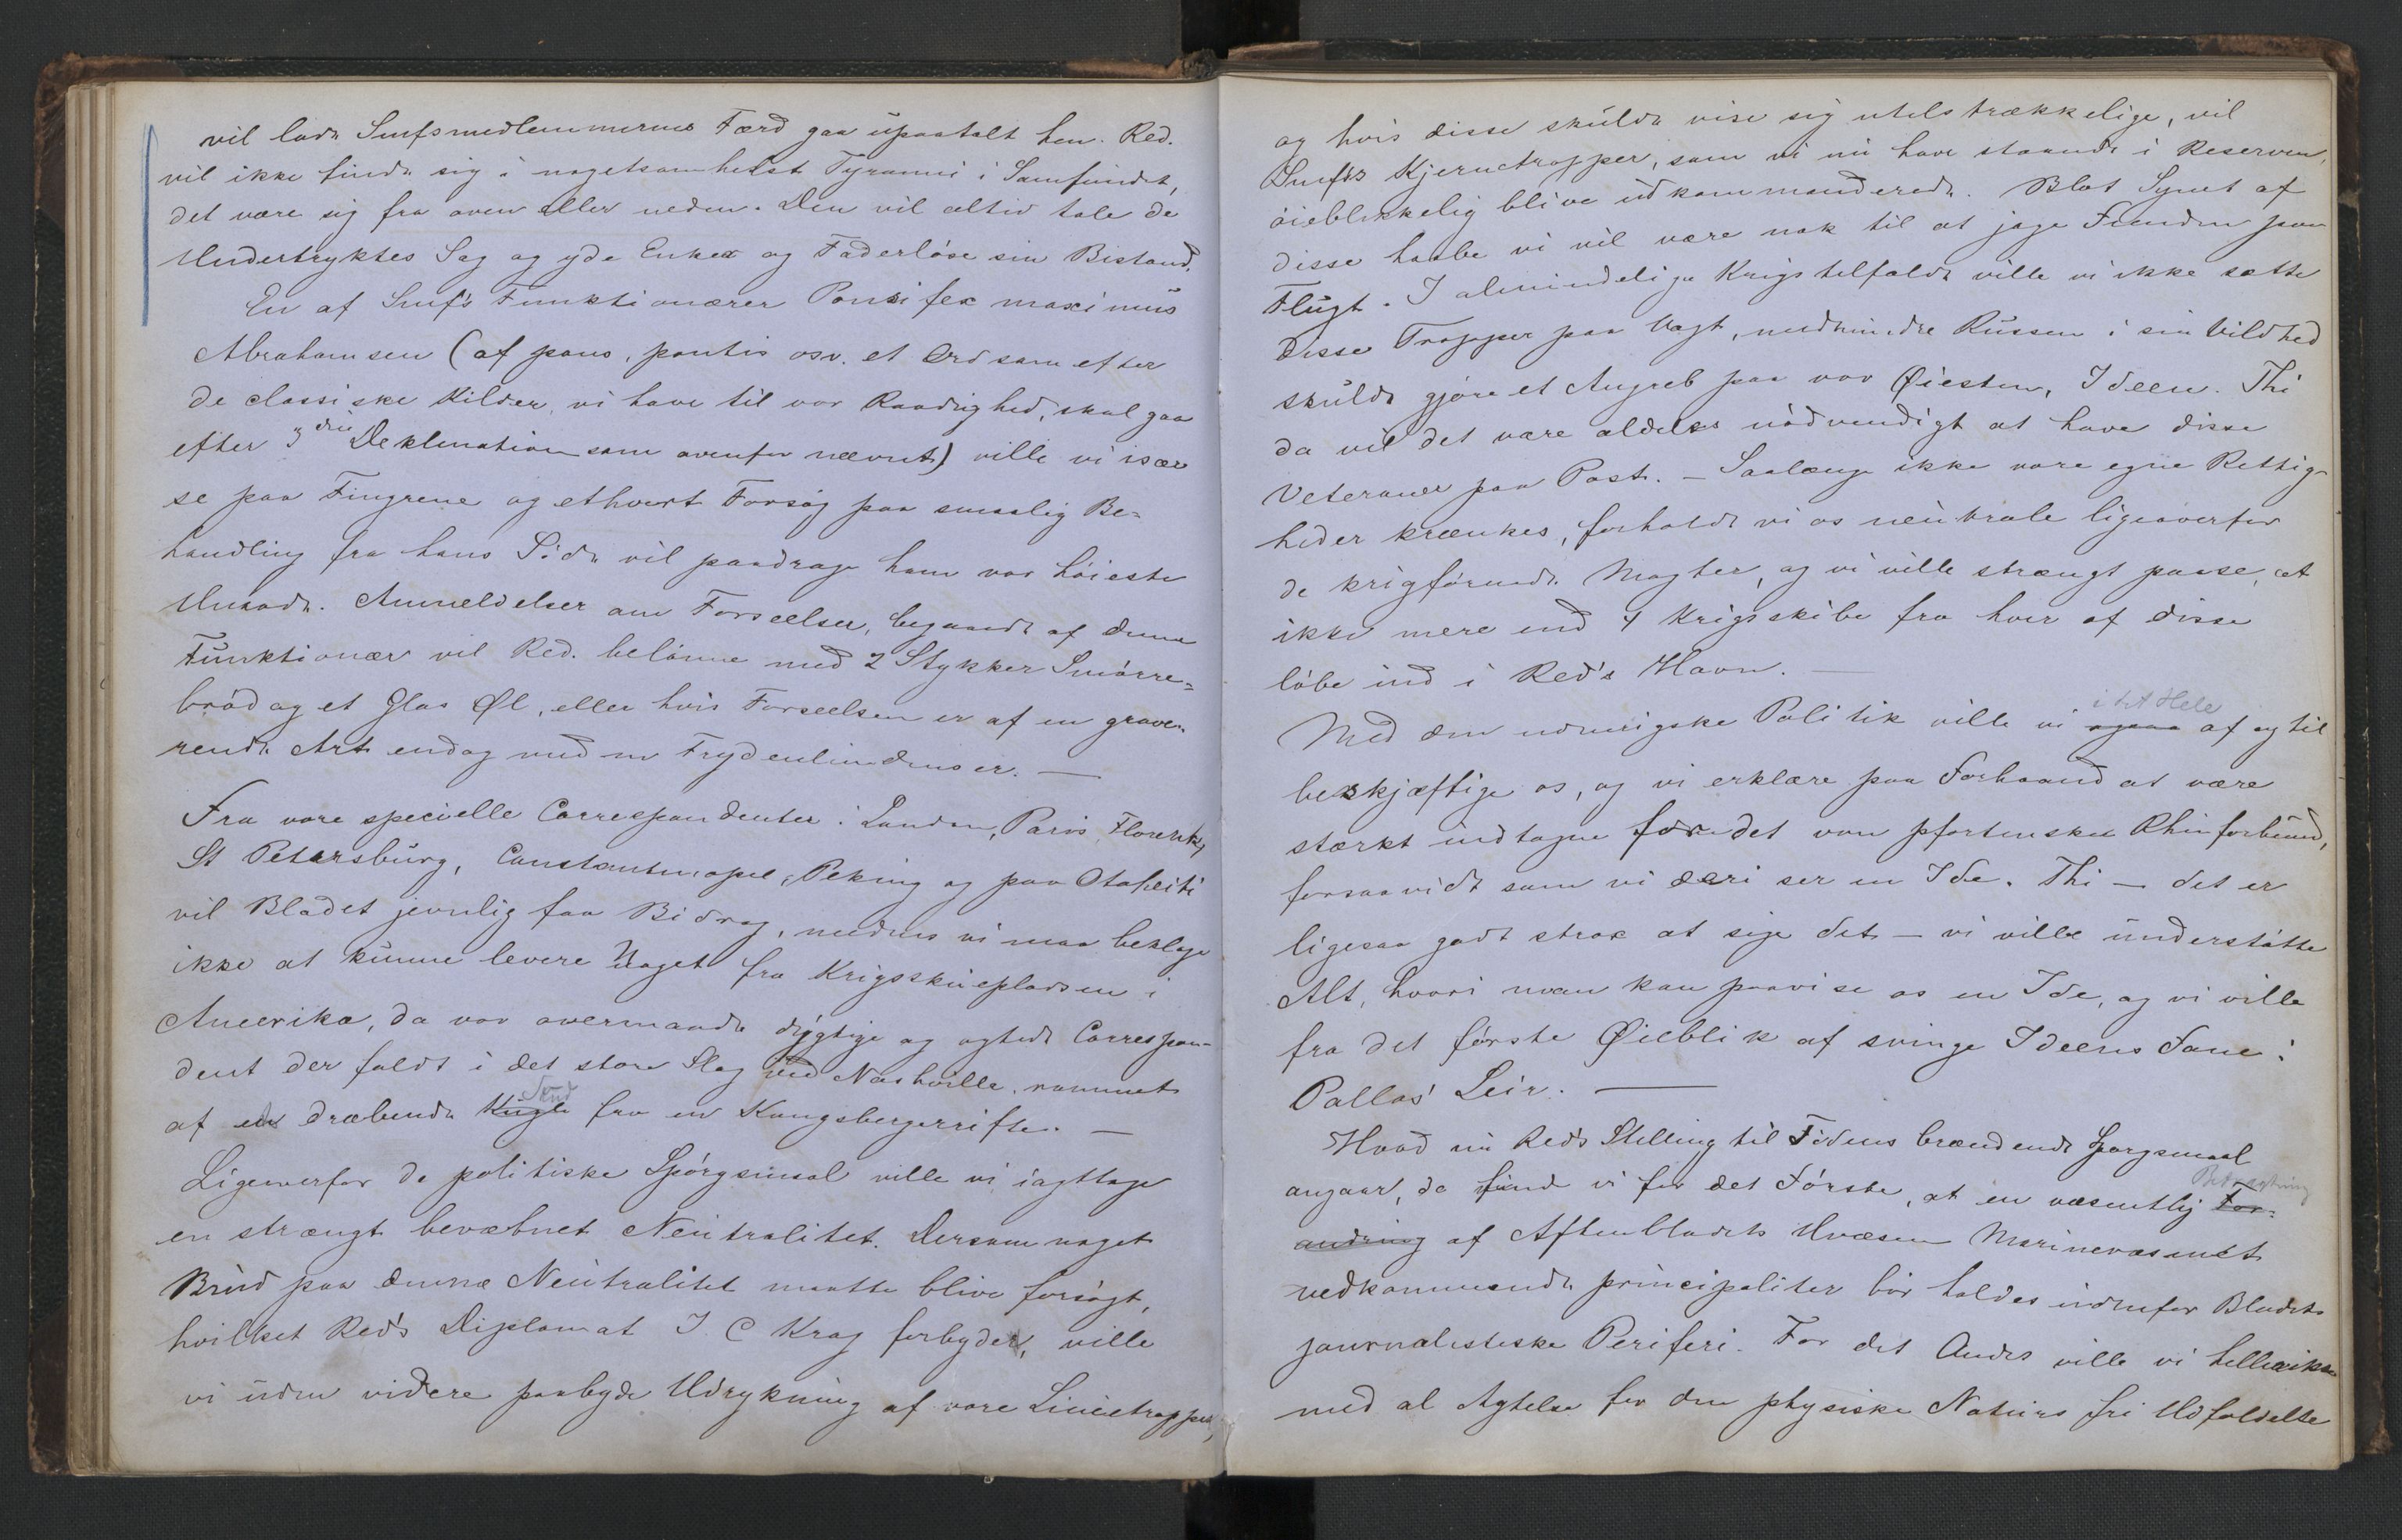 vil lade Smfsmedlemmernes Færd gaa upaatalt hen. Red.
vil ikke finde sig i nogetsomhelst Tyranni i Samfundet,
det være sig fra oven eller neden. Den vil altid tale de
Undertryktes Sag og yde Enker og Faderløse sin Bistand.
En af Smf's Funktionærer Pontifex maximus
Abrahamsen (af pons, pontis osv. et Ord som efter
de classiske Kilder, vi have til vor Raadighed, skal gaa
efter 3die Deklination som ovenfor nævnt) ville vi især
se paa Fingrene og ethvert Forsøg paa smaalig Be-
handling fra hans Side vil paadrage ham vor høieste
Unaade. Anmeldelser om Forseelser, begaaede af denne
Funktionær vil Red. belønne med 2 Stykker Smørre-
brød og et Glas Øl, eller hvis Forseelsen er af en grave-
rende Art endog med en Frydenlundenser. —
Fra vore specielle Correspondenter i London, Paris, Florents,
St Petersburg, Constantinopel, Peking og paa Otaheiti
vil Bladet jevnlig faa Bidrag, medens vi maa beklage
ikke at kunne levere Noget fra Krigsskuepladsen i
Amerika, da vor overmaade dygtige og agtede Correspon-
dent der faldt i det store Slag ved Nashville, rammet
af en dræbende Kugle fra en Kongsbergerrifle. —
Ligeoverfor de politiske Spørgsmaal ville vi iagttage
en strængt bevæbnet Neutralitet. Dersom noget
Brud paa denne Neutralitet maatte blive forsøgt,
hvilket Red's Diplomat I. C Krag forbyder, ville
vi uden videre paabyde Udrykning af vore Linietropper,
og hvis disse skulde vise sig utilstrækkelige, vil
Smfs Kjernetropper, som vi nu have staaende i Reserven,
øieblikkelig blive udkommanderede. Blot Synet af
disse haabe vi vil være nok til at jage Fienden paa
Flugt. I almindelige Krigstilfælde ville vi ikke sætte
disse Tropper paa Vagt, medmindre Russen i sin Vildhed
skulde gjøre et Angreb paa vor Øiesten, Ideen. Thi
da vil det være aldeles nødvendigt at have disse
Veteraner paa Post. — Saalænge ikke vore egne Rettig-
heder krænkes, forholde vi os neutrale ligeoverfor
de krigførende Magter, og vi ville strængt passe, at
ikke mere end 4 Krigsskibe fra hver af disse
løbe ind i Red's Havn. —
i det Hele
Med den udenrigske Politik ville vi ogsaa af og til
beskjæftige os, og vi erklære paa Forhaand at være
stærkt indtagne for det von pfortenske Rhinforbund,
forsaavidt som vi deri ser en Ide. Thi — det er
ligesaa godt strax at sige det — vi ville understøtte
Alt, hvori man kan paavise os en Ide, og vi ville
fra det første Øieblik af svinge Ideens Fane i
Pallas' Leir. —
Hvad nu Red's Stilling til Tidens brændende Spørgsmaal
angaar, da finde vi for det Første, at en væsentlig For-
Betragtning
andring af Aftenbladets Uvæsen Marinevæsenet
vedkommende principaliter bør holdes udenfor Bladets
journalistiske Periferi. For det Andet ville vi
med al Agtelse for den physiske Naturs fri Udfoldelse